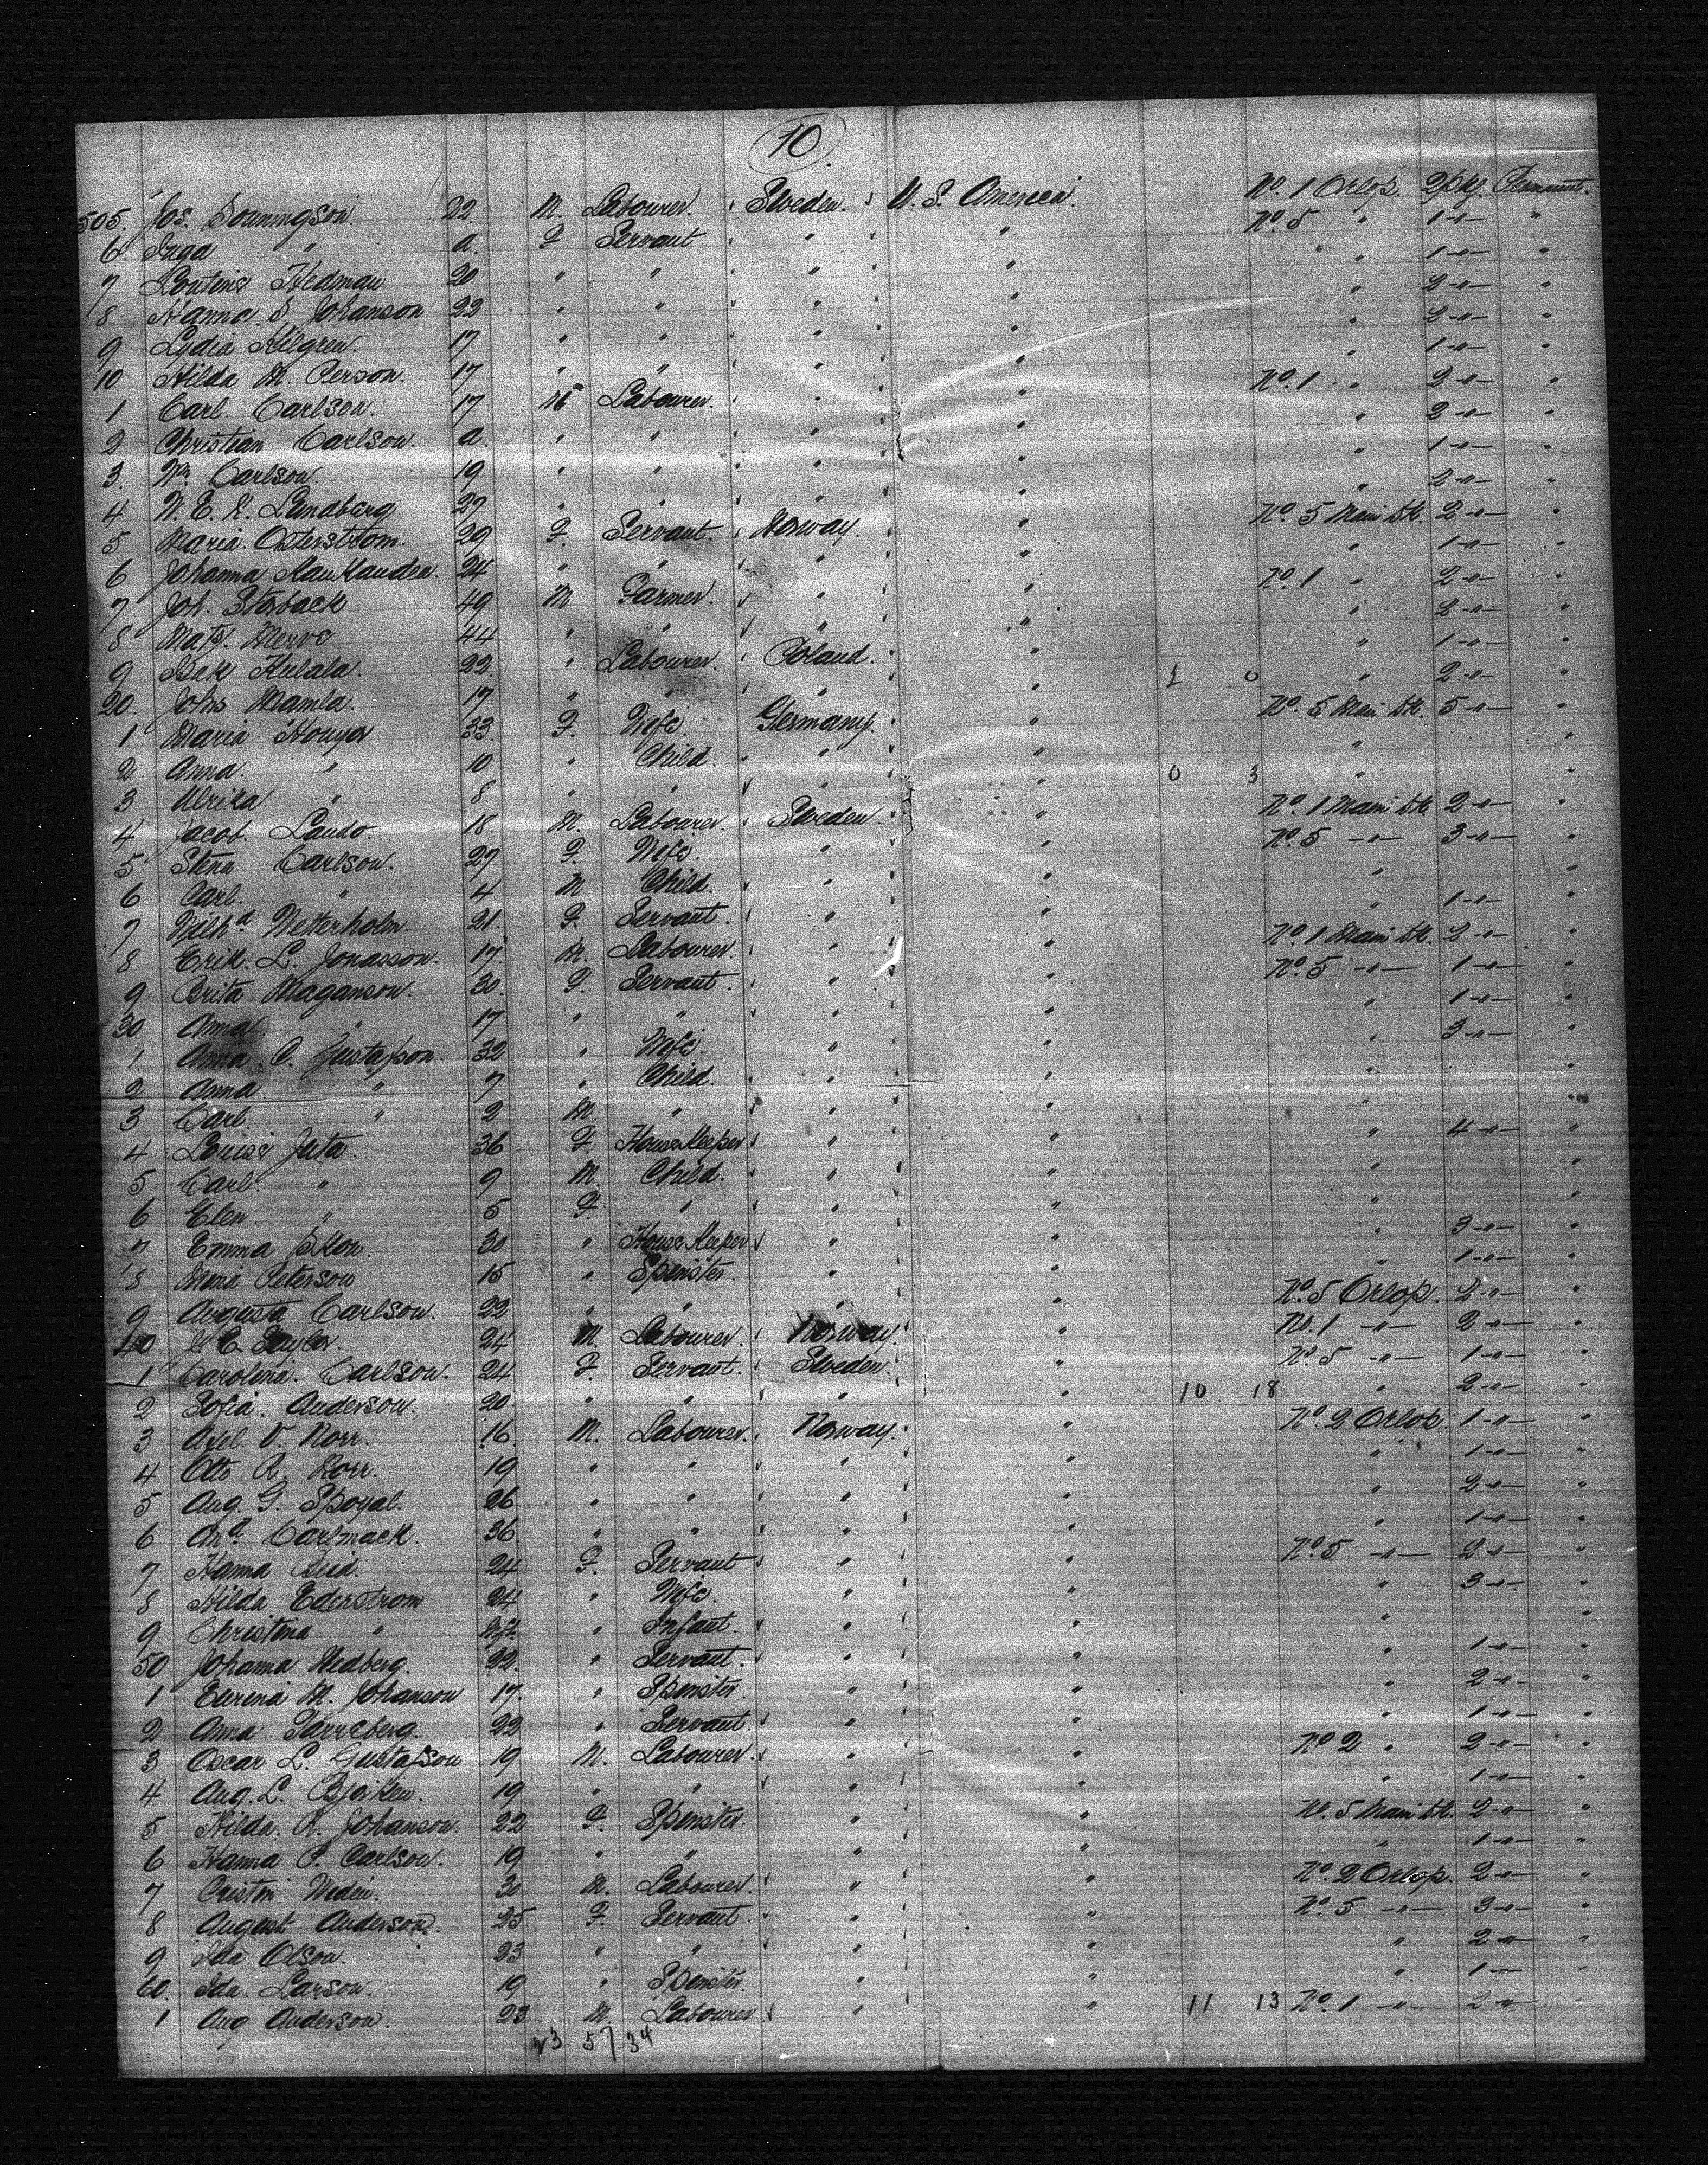 10.
505. Jos. 22 M. Labourer. Sweden. U. S. America. No. 1 Orlop. 2 pkg. Permant.
6 Inga " a. F Servant " " No. 5 " 1 -"- "
7 Hedman 20 " " " " " 1 -"- "
8 Hanna S. Johanson 22 " " " " " 2 -"- "
9 Lydia Kilgren. 17 " " " " " 2 -"- "
10 Hilda M. Person. 17 " " " " " 1 -"- "
1 Carl. Carlson. 17 M Labourer. " " No. 1 " 2 -"- "
2 Christian Carlson. a. " " " " " 2 -"- "
3. Wm. Carlson. 19 " " " " " 1 -"- "
4 N. E. K. Lundberg 27 " " " " " 2 -"- "
5 Maria. Osterstrom. 29 F. Servant. Norway. " No. 5 Main Dk. 2 -"- "
6 Johanna 24 " " " " " 1 -"- "
7 Joh. Storback 49 M Farmer. " " No. 1 " 2 -"- "
8 Mats. 44 " " " " " 2 -"- "
9 Kulala. 22. " Labourer. Poland. " " 1 -"- "
20. Johs Mamla. 17 " " " " 1 0 " 2 -"- "
1 Maria 33 F. Wife. Germany. " No. 5 Main Dk. 5 -"- "
2 Anna. " 10 " Child. " " " "
3 Ulrika " 8 " " " " 0 3 " "
4 Jacob. Lando. 18 M. Labourer. Sweden. " No. 1 Main Dk. 2 -"- "
5 Stina Carlson. 27 F. Wife. " " No. 5 -"- 3 -"- "
6 Carl. " 4 M Child. " " " "
7 Wilhd. Wetterholm. 21. F. Servant. " " " 1 -"- "
8 Erik. L. Jonasson. 17. M. Labourer. " " No. 1 Main Dk. 2 -"- "
9 Brita Maganson. 30. F. Servant. " " No. 5 -"- 1 -"- "
30 Anna. " 17 " " " " " 1 -"- "
1 Anna. C. Gustafson. 32 " Wife. " " " 3 -"- "
2 Anna. " 7 " Child. " " " "
3 Carl. " 2 M. " " " " "
4 Louise Juta. 36 F. HouseKeeper " " " 4 -"- "
5 Carl. " 9 M. Child. " " " "
6 Elen. " 5 F. " " " " "
7 Emma 30 " HouseKeeper " " " 3 -"- "
8 Peterson 15 " Spinster. " " " 1 -"- "
9 Augusta Carlson. 22 " " " " No. 5 Orlop. 2 -"- "
40 J. E. Taylor. 24 M. Labourer. Norway. " No. 1 -"- 2 -"- "
1 Carolina. Carlson. 24 F. Servant. Sweden. " No. 5 -"- 1 -"- "
2 Sofia. Anderson. 20 " " " " 10 18 " 2 -"- "
3 Axel. V. Norr. 16. M. Labourer. Norway. " No. 2 Orlop. 1 -"- "
4 Otto R. Norr. 19 " " " " " 1 -"- "
5 Aug. G. 26 " " " " " 2 -"- "
6 Carlmack. 36. " " " " " 1 -"- "
7 Hanna 24 F. Servant " " No. 5 -"- 2 -"- "
8 Hilda Ederstrom 24 " Wife. " " " 3 -"- "
9 Christina " Inft. " Infant. " " " "
50 Johanna Hedberg. 22. " Servant. " " " 1 -"- "
1 M. Johanson 17. " Spinster. " " " 2 -"- "
2 Anna 22. " Servant. " " " 1 -"- "
3 Oscar L. Gustafson 19 M. Labourer. " " No. 2 " 2 -"- "
4 Aug. L. Bjorken. 19 " " " " " 1 -"- "
5 Hilda. R. Johanson. 22 F. Spinster. " " No. 5 Main Dk. 2 -"- "
6 Hanna P. Carlson. 19 " " " " " 1 -"- "
7 Cristin 30 M. Labourer. " " No. 2 Orlop. 2 -"- "
8 August Anderson. 25 F. Servant. " " No. 5 -"- 3 -"- "
9 Ida Olson. 23 " " " " " 2 -"- "
60. Ida. Larson. 19 " Spinster. " " " 1 -"- "
1 Aug Anderson. 23 M. Labourer " " 11 13 No. 1 -"- 2 -"- "
23 57 34